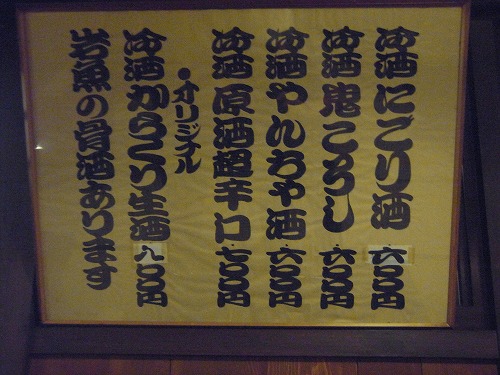 冷酒にごり酒 六〇〇円
冷酒鬼ころし 六〇〇円
冷酒やんちゃ酒 六〇〇円
冷酒原酒超辛口 七〇〇円
●オリジナル
冷酒からくり生酒 八〇〇円
岩魚の骨酒あります